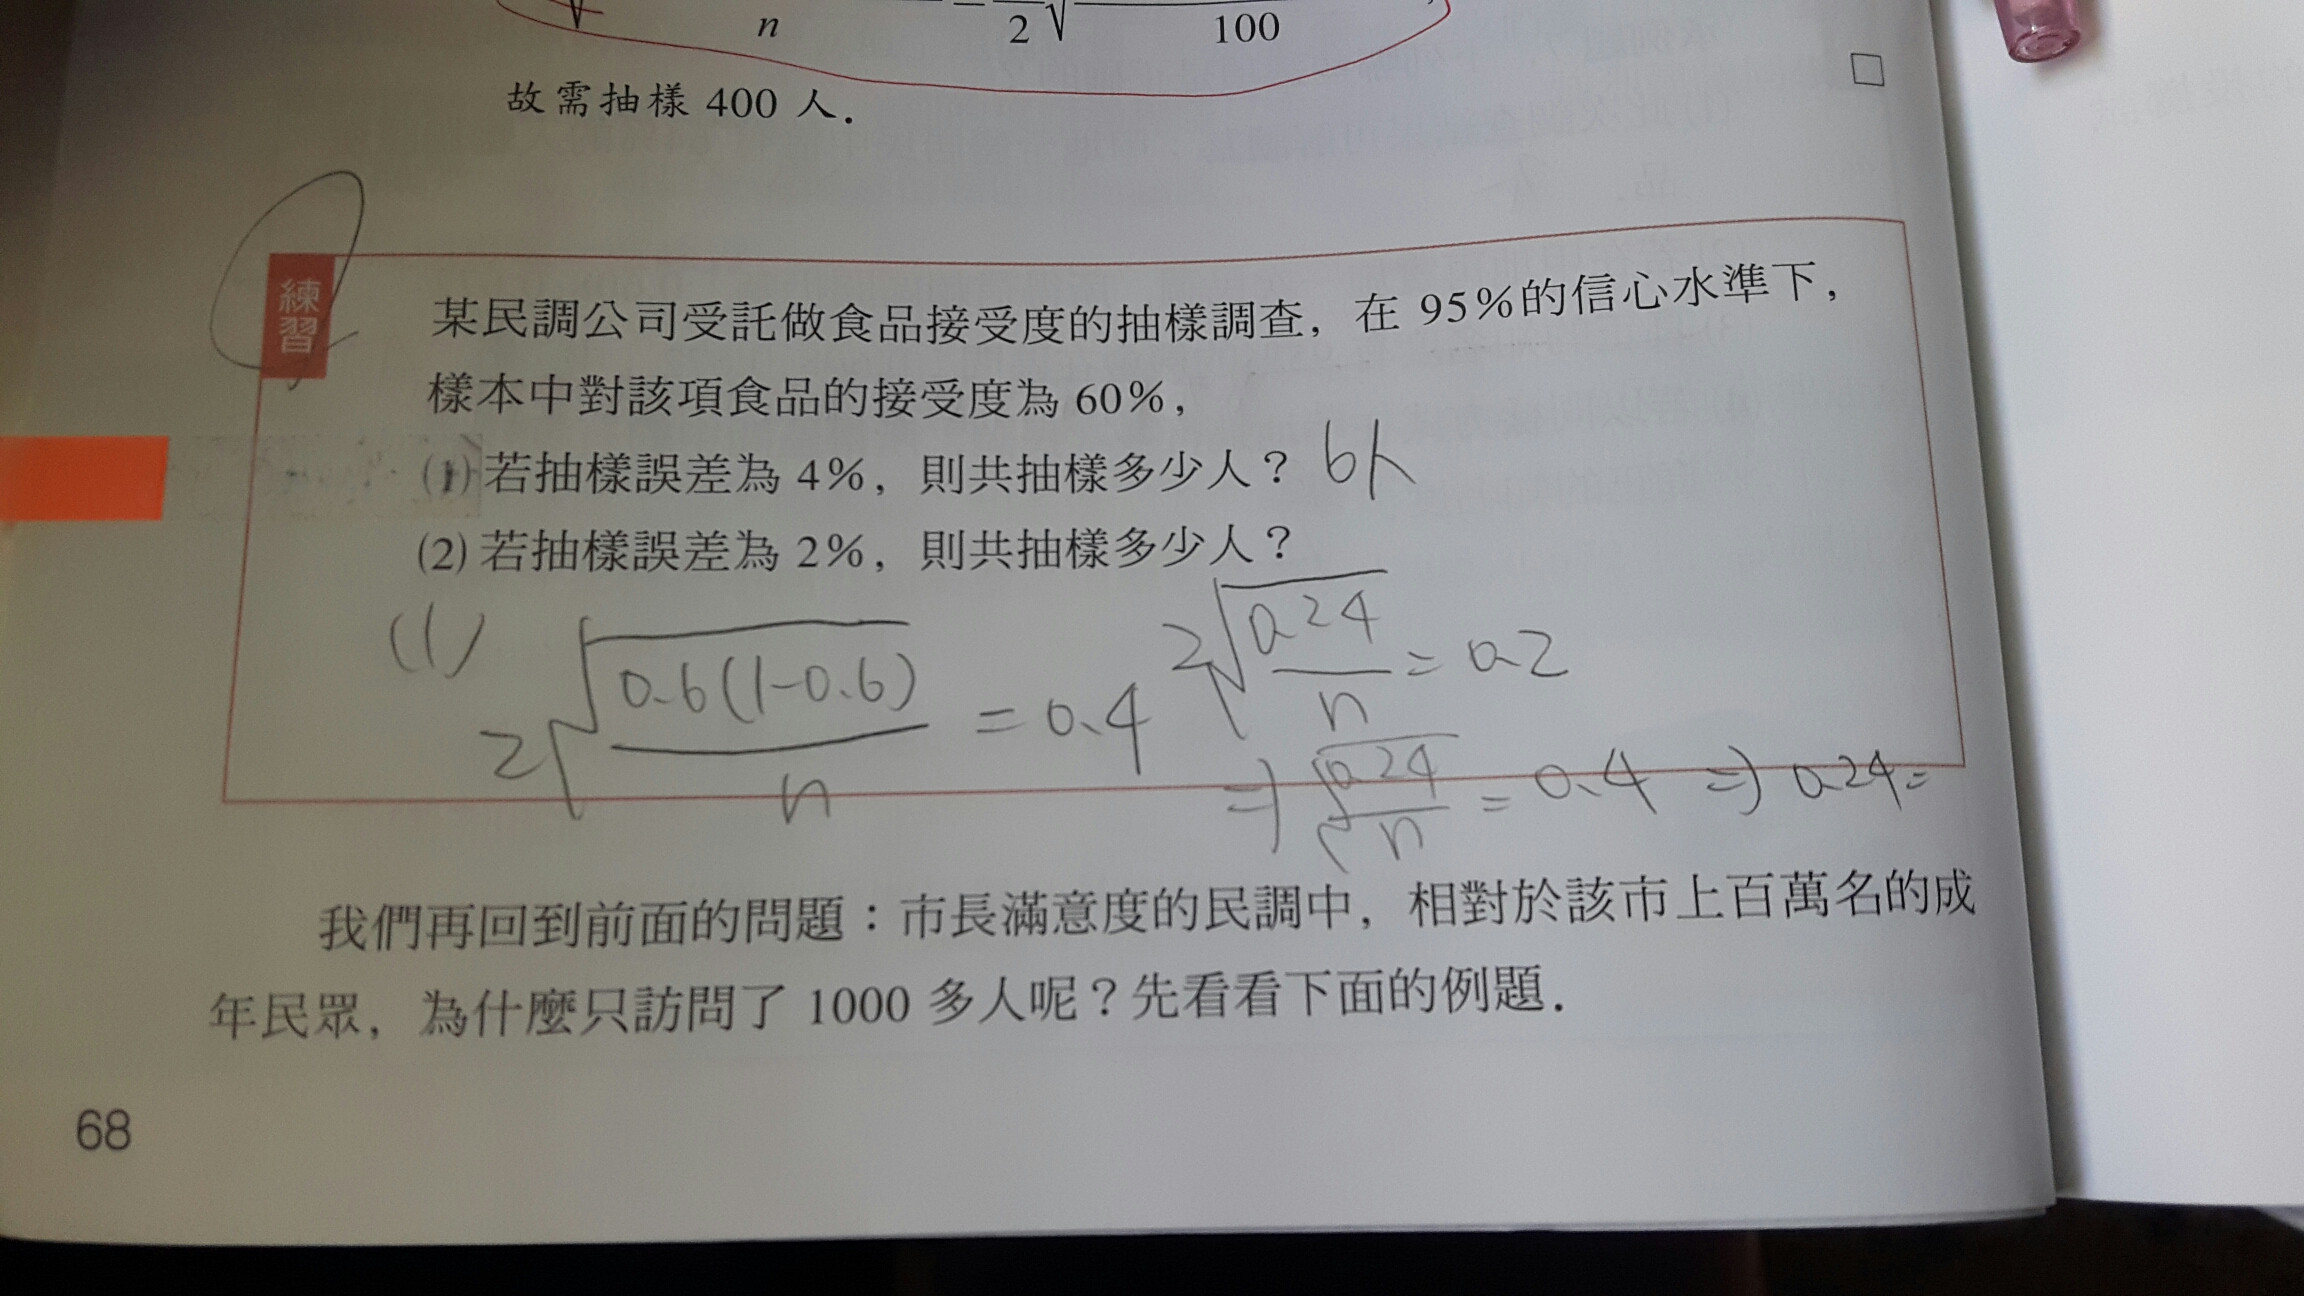 n  2√  100
故需抽樣 400 人.
練習
某民調公司受託做食品接受度的抽樣調查，在 95%的信心水準下，
樣本中對該項食品的接受度為 60%，
(1) 若抽樣誤差為 4%，則共抽樣多少人？ 6人
(2) 若抽樣誤差為 2%，則共抽樣多少人？
(1) 2√(0.6(1-0.6)/n) = 0.4
2√(0.24/n) = 0.2
⇒ √(0.24/n) = 0.4 ⇒ 0.24=
我們再回到前面的問題：市長滿意度的民調中，相對於該市上百萬名的成
年民眾，為什麼只訪問了 1000 多人呢？先看看下面的例題.
68